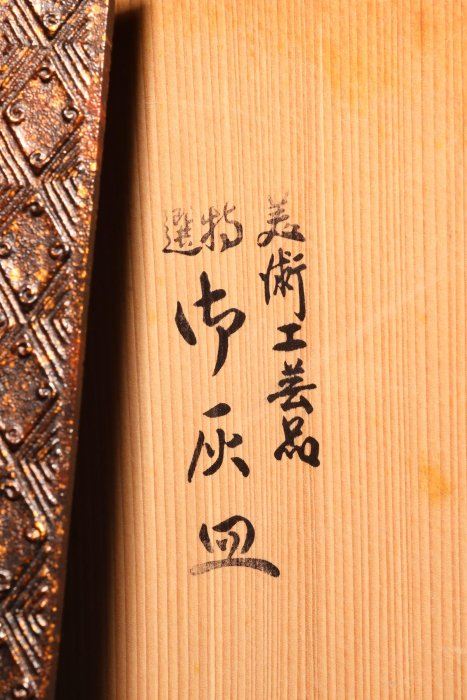 美術工芸品
特選
御灰皿